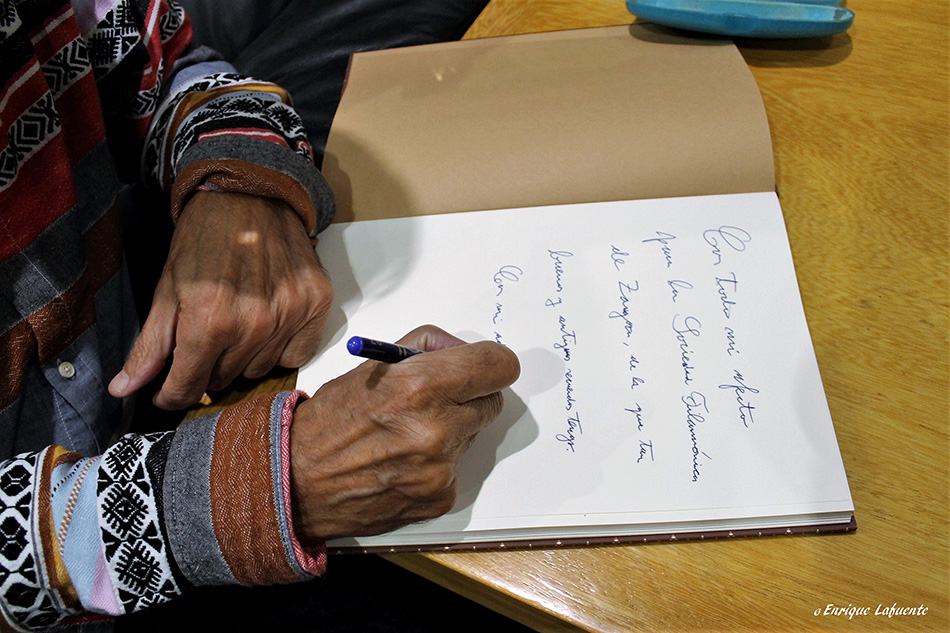 Con todo mi afecto
para la Sociedad Filarmónica
de Zaragoza, de la que tan
buenos y antiguos recuerdos tengo.
Con mi
© Enrique Lafuente